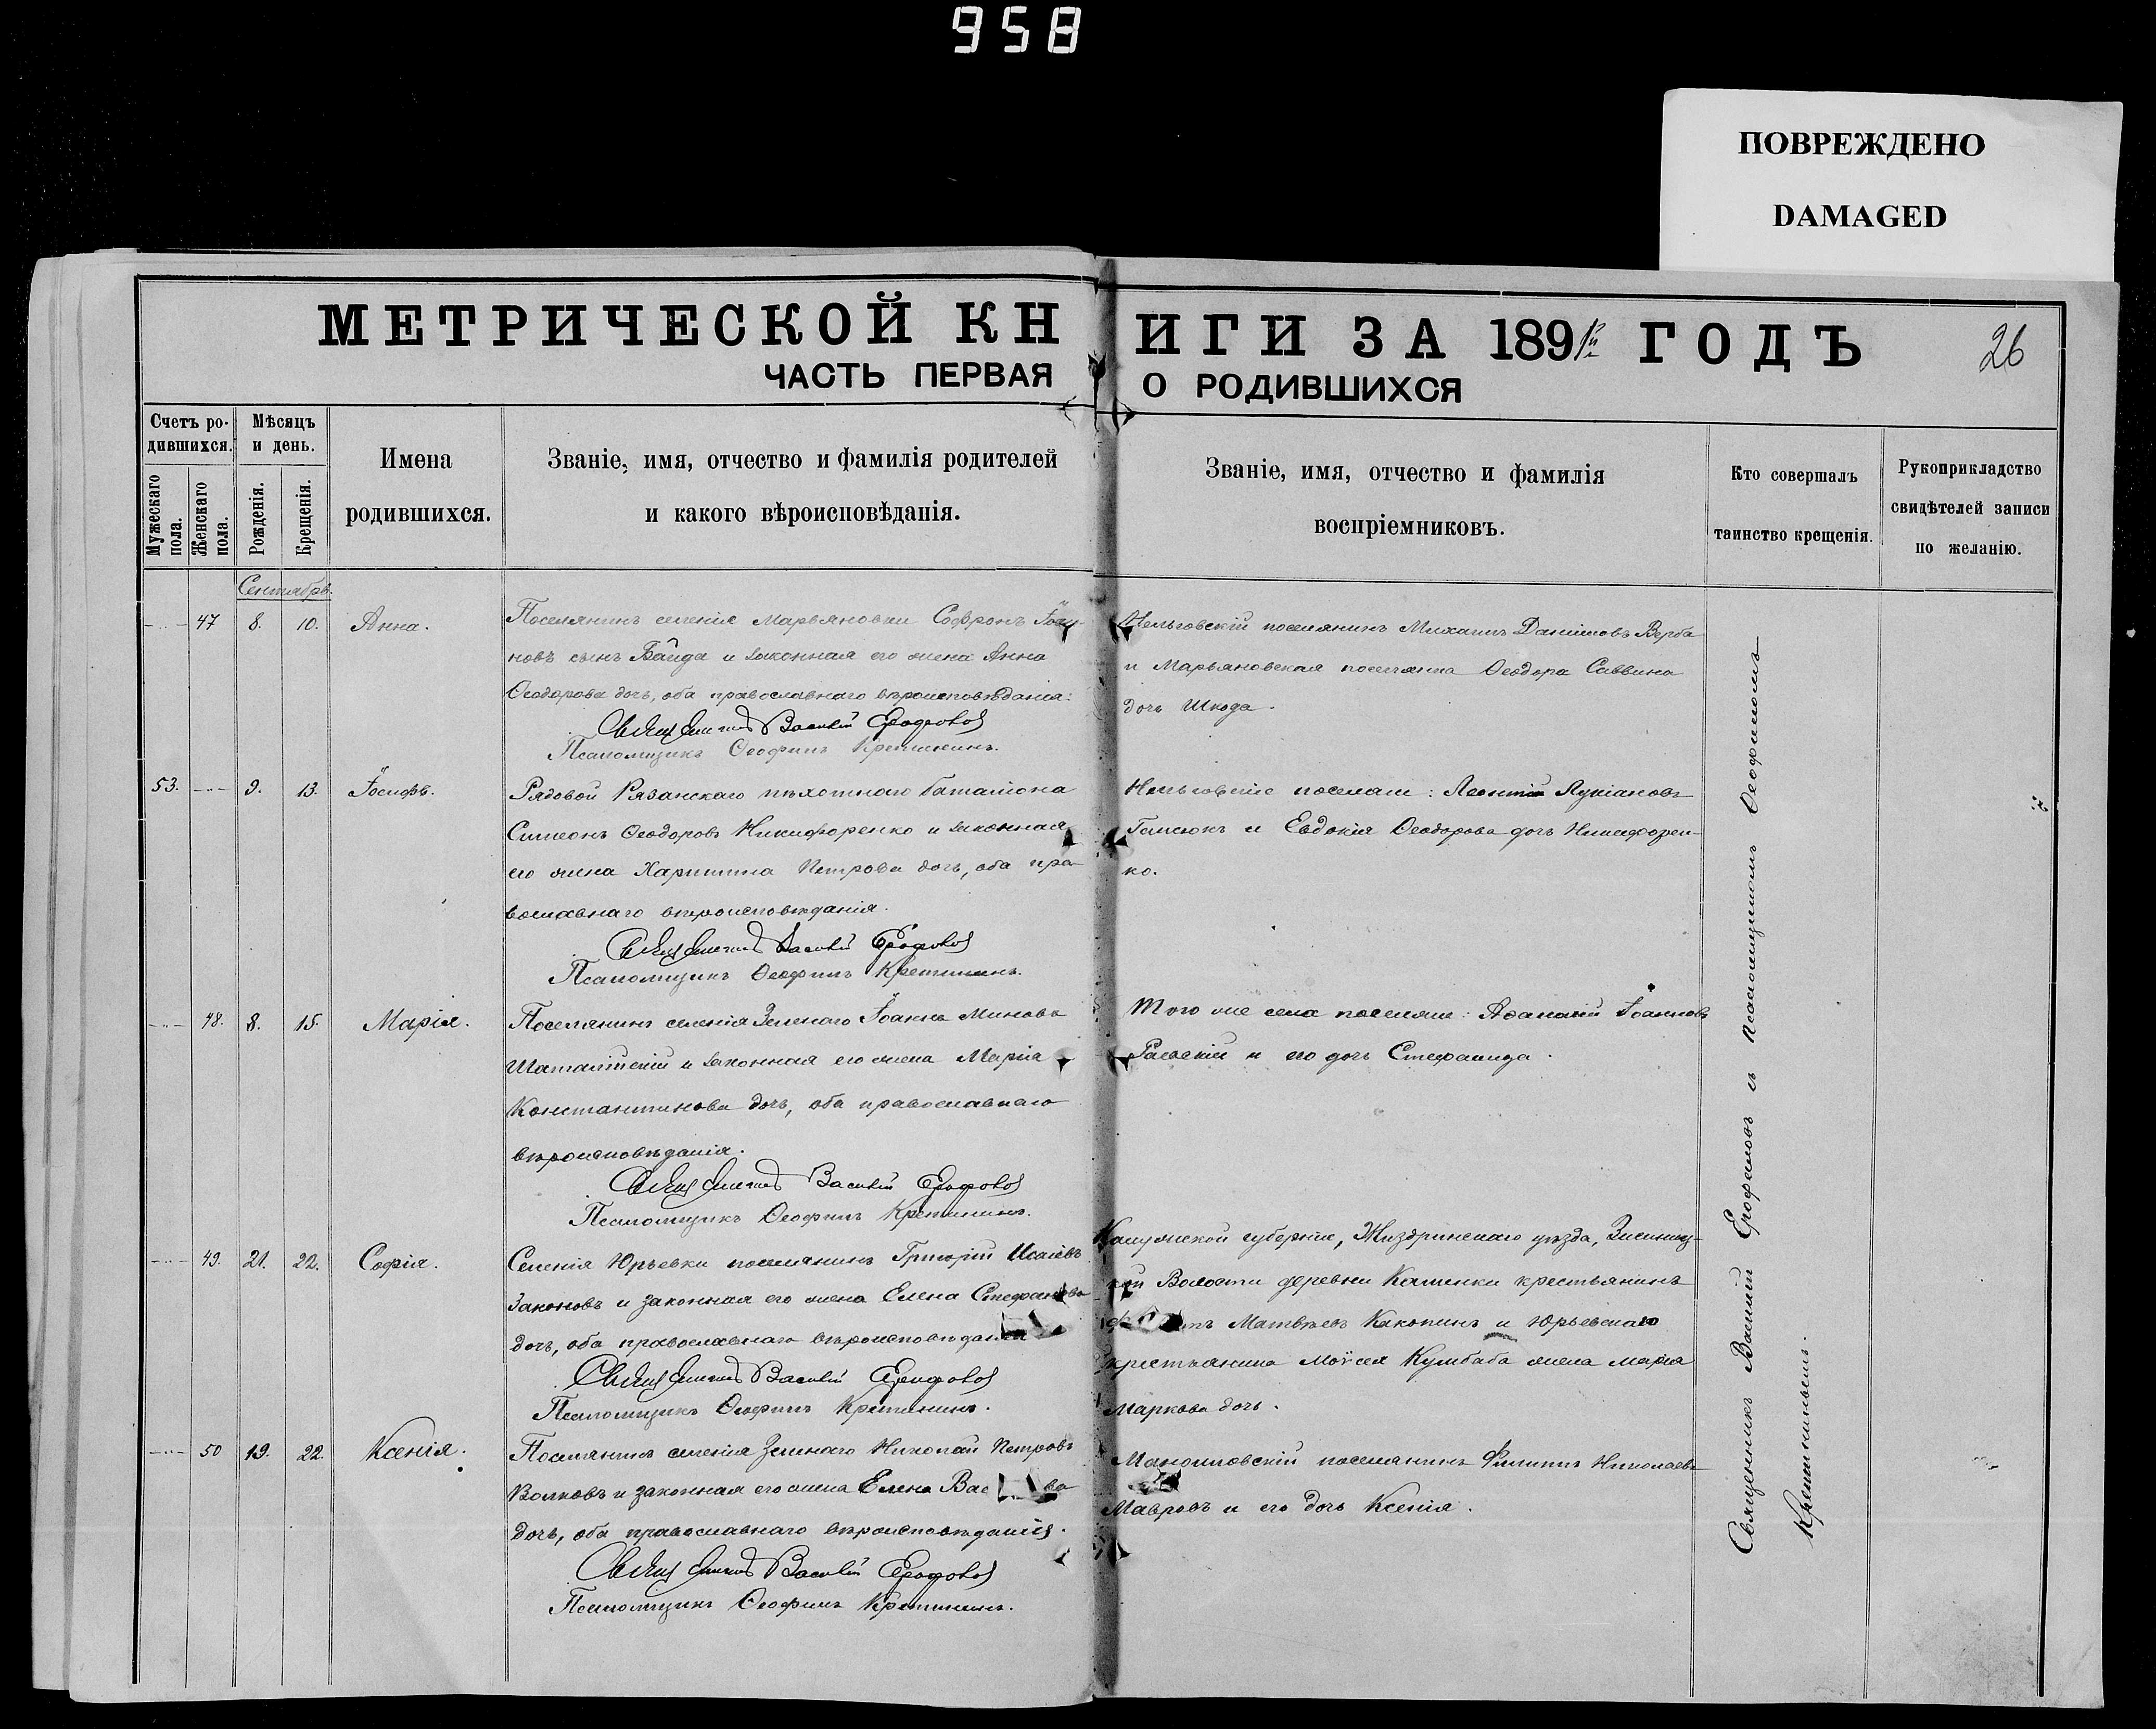 958
ПОВРЕЖДЕНО
DAMAGED
МЕТРИЧЕСКОЙ КНИГИ ЗА 1891й ГОДЪ
26
ЧАСТЬ ПЕРВАЯ О РОДИВШИХСЯ
Счетъ родившихся.
Мужескаго пола.
Женскаго пола.
Мѣсяцъ и день.
Рожденія.
Крещенія.
Имена
родившихся.
Званіе, имя, отчество и фамилія родителей
и какого вѣроисповѣданія.
Званіе, имя, отчество и фамилія
воспріемниковъ.
Кто совершалъ
таинство крещенія.
Рукоприкладство
свидѣтелей записи
по желанію.
Сентябрь.
47 8. 10. Анна.
Поселянинъ селенія Марьяновки Софронъ
новъ сынъ Байда и законная его жена Анна
Ѳеодорова дочь, оба православнаго вѣроисповѣданія.
Священникъ Василій Ерофаловъ
Псаломщикъ Ѳеофилъ Кретининъ.
поселянинъ Михаилъ Даниловъ Верба
и Марьяновская поселянка Ѳеодора Саввина
дочь Шкода.
53. 9. 13. Іосифъ.
Рядовой Рязанскаго пѣхотнаго баталіона
Симеонъ Ѳеодоровъ Никифоренко и законная
его жена Харитина Петрова дочь, оба пра-
вославнаго вѣроисповѣданія.
Священникъ Василій Ерофаловъ
Псаломщикъ Ѳеофилъ Кретининъ.
поселяне: Леонтій Лукіановъ
и Евдокія Ѳеодорова дочь Никифорен-
ко.
48. 8. 15. Марія.
Поселянинъ селенія Зеленаго Іоаннъ Миновъ
и законная его жена Марія
Константинова дочь, оба православнаго
вѣроисповѣданія.
Священникъ Василій Ерофаловъ
Псаломщикъ Ѳеофилъ Кретининъ.
Того же села поселяне: Аѳанасій Іоанновъ
Раевскій и его дочь Стефанида.
49. 21. 22. Софія.
Селенія Юрьевки поселянинъ Григорій Исаіевъ
Законовъ и законная его жена Елена Стефанова
дочь, оба православнаго вѣроисповѣданія
Священникъ Василій Ерофаловъ
Псаломщикъ Ѳеофилъ Кретининъ.
Калужской губерніи, Жиздринскаго уѣзда,
Волости деревни Каменки крестьянинъ
Матвѣевъ Какопинъ и Юрьевскаго
крестьянина Моѵсея Кумбаба жена Марія
Маркова дочь.
50 19. 22. Ксенія.
Поселянинъ селенія Зеленаго Николай Петровъ
Волковъ и законная его жена Елена Вас ва
дочь, оба православнаго вѣроисповѣданія.
Священникъ Василій Ерофаловъ
Псаломщикъ Ѳеофилъ Кретининъ.
Маноиловскій поселянинъ Филиппъ Николаевъ
Мавровъ и его дочь Ксенія.
Священникъ Василій Ерофаловъ съ псаломщикомъ Ѳеофиломъ
Кретининымъ.